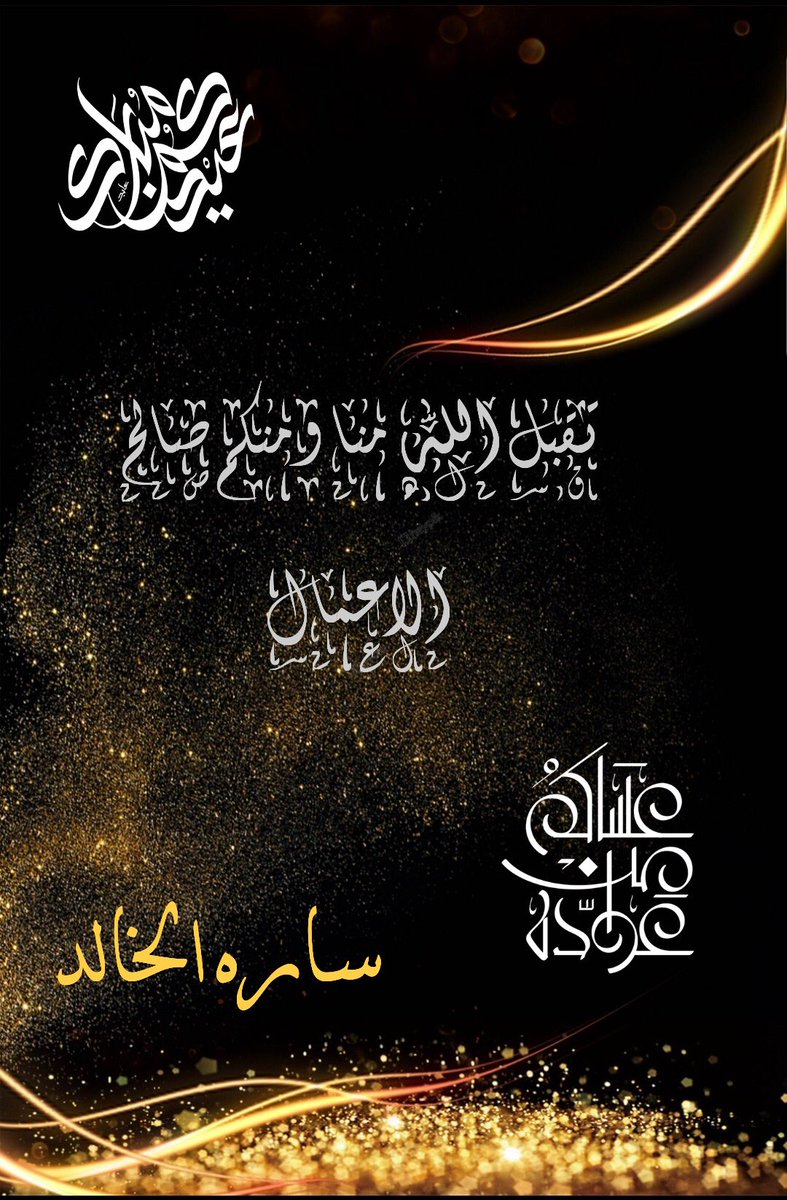 عيدكم مبارك
تقبل الله منا ومنكم صالح
الاعمال
عساكم
من
عواده
ساره الخالد